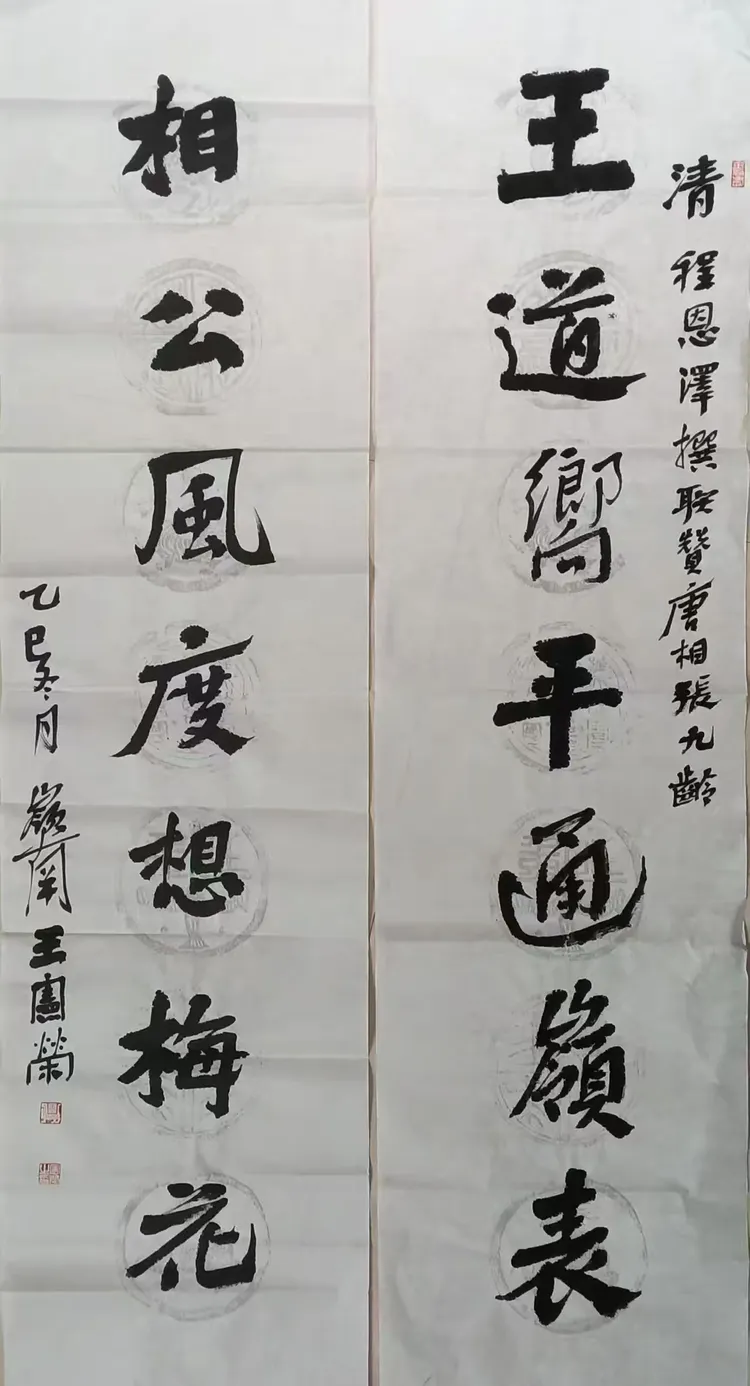 清 程恩澤撰聯贊唐相張九齡
王道嚮平通嶺表
相公風度想梅花
乙巳冬月 嶺南王憲榮